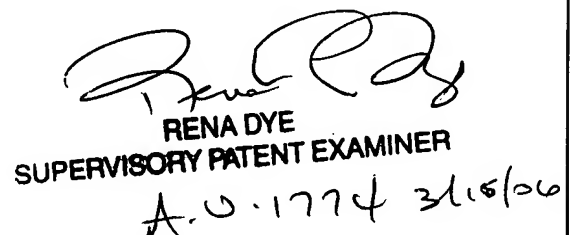 Rena Dye
RENA DYE
SUPERVISORY PATENT EXAMINER
A.U. 1774 3/15/06